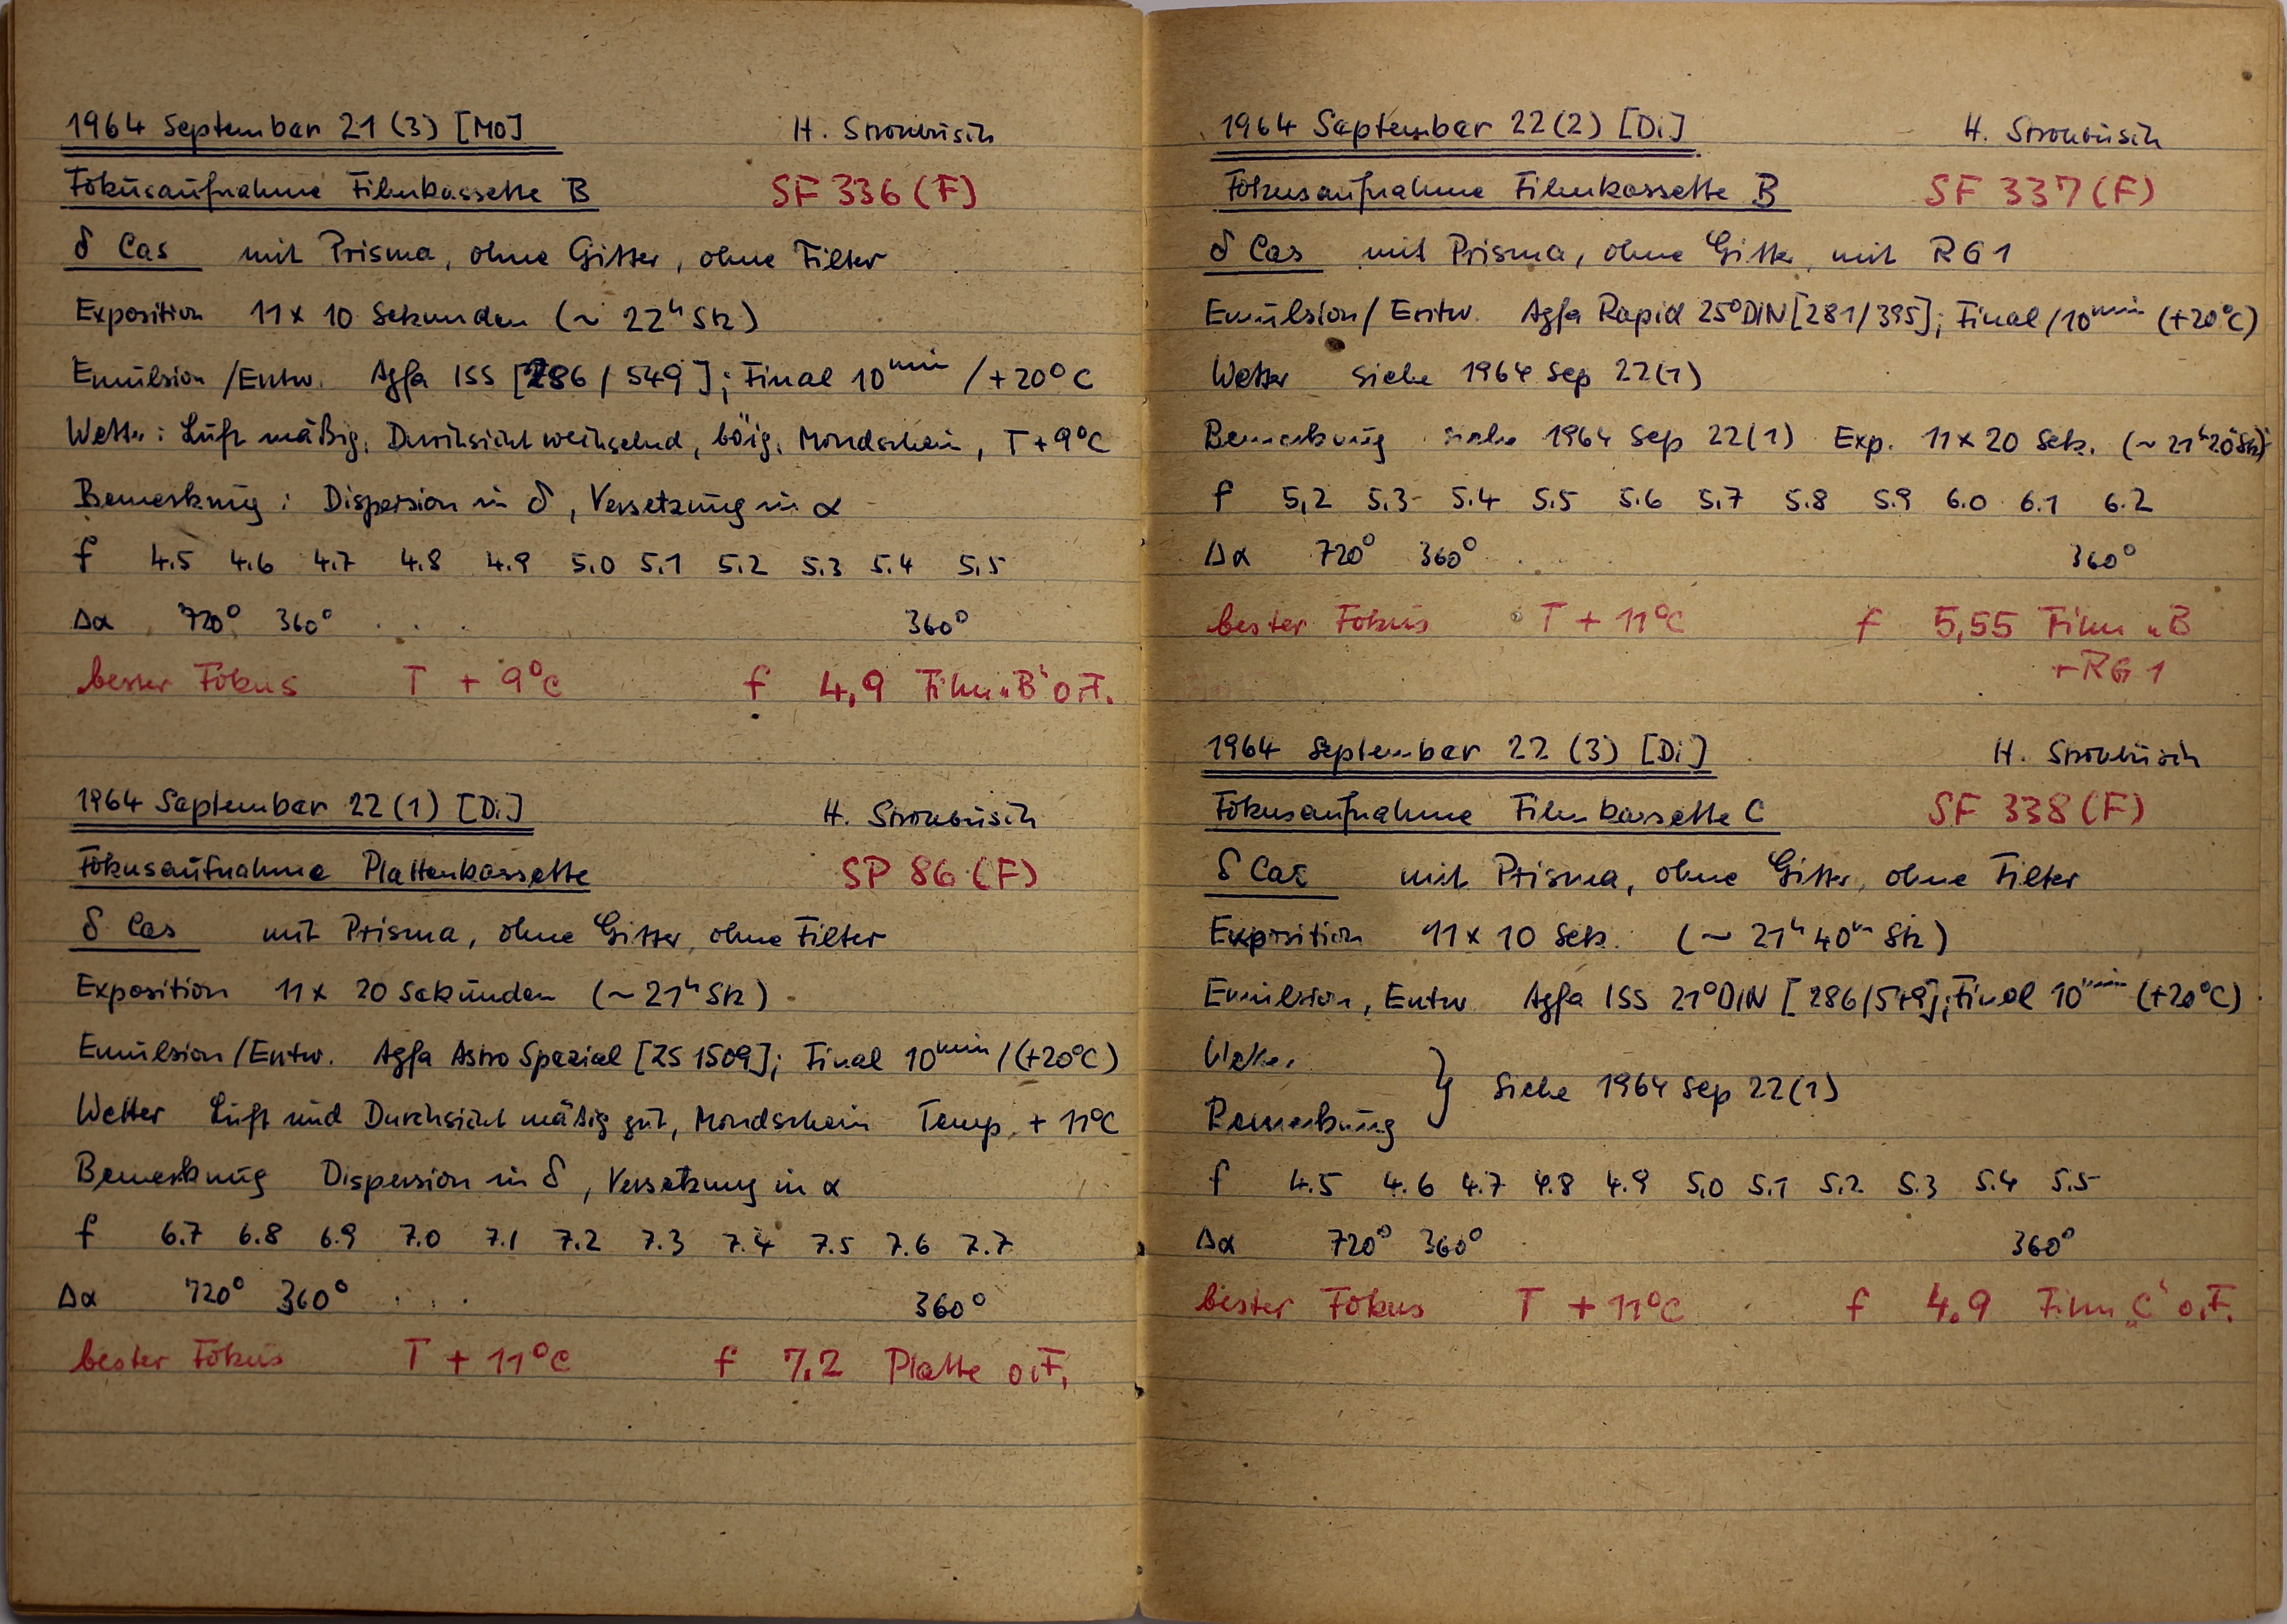 1964 September 21 (3) [Mo] H. Strohbusch
Fokusaufnahme Filmkassette B SF 336 (F)
δ Cas mit Prisma, ohne Gitter, ohne Filter
Exposition 11 x 10 Sekunden (~ 22ʰ Stz)
Emulsion / Entw. Agfa ISS [286 / 549]; Final 10ᵐⁱⁿ / +20°C
Wetter: Luft mäßig, Durchsicht wechselnd, böig, Mondschein, T + 9°C
Bemerkung: Dispersion in δ, Versetzung in α
f 4.5 4.6 4.7 4.8 4.9 5.0 5.1 5.2 5.3 5.4 5.5
Δα 720° 360° . . . 360°
bester Fokus T + 9°C f 4,9 Film „B" o.F.
1964 September 22 (1) [Di] H. Strohbusch
Fokusaufnahme Plattenkassette SP 86 (F)
δ Cas mit Prisma, ohne Gitter, ohne Filter
Exposition 11 x 20 Sekunden (~ 21ʰ Stz)
Emulsion / Entw. Agfa Astro Spezial [ZS 1509]; Final 10ᵐⁱⁿ / (+20°C)
Wetter Luft und Durchsicht mäßig gut, Mondschein Temp. + 11°C
Bemerkung Dispersion in δ, Versetzung in α
f 6.7 6.8 6.9 7.0 7.1 7.2 7.3 7.4 7.5 7.6 7.7
Δα 720° 360° . . . 360°
bester Fokus T + 11°C f 7.2 Platte o.F.
1964 September 22 (2) [Di] H. Strohbusch
Fokusaufnahme Filmkassette B SF 337 (F)
δ Cas mit Prisma, ohne Gitter, mit RG 1
Emulsion / Entw. Agfa Rapid 25°DIN [281/395]; Final / 10ᵐⁱⁿ (+20°C)
Wetter siehe 1964 Sep 22 (1)
Bemerkung siehe 1964 Sep 22 (1) Exp. 11 x 20 Sek. (~ 21ʰ20ᵐ Stz)
f 5,2 5.3 5.4 5.5 5.6 5.7 5.8 5.9 6.0 6.1 6.2
Δα 720° 360° . . . 360°
bester Fokus T + 11°C f 5,55 Film „B
+ RG 1
1964 September 22 (3) [Di] H. Strohbusch
Fokusaufnahme Filmkassette C SF 338 (F)
δ Cas mit Prisma, ohne Gitter, ohne Filter
Exposition 11 x 10 Sek. (~ 21ʰ 40ᵐ Stz)
Emulsion, Entw. Agfa ISS 21°DIN [286/549]; Final 10ᵐⁱⁿ (+20°C)
Wetter
Bemerkung } siehe 1964 Sep 22 (1)
f 4.5 4.6 4.7 4.8 4.9 5.0 5.1 5.2 5.3 5.4 5.5
Δα 720° 360° 360°
bester Fokus T + 11°C f 4.9 Film „C" o.F.